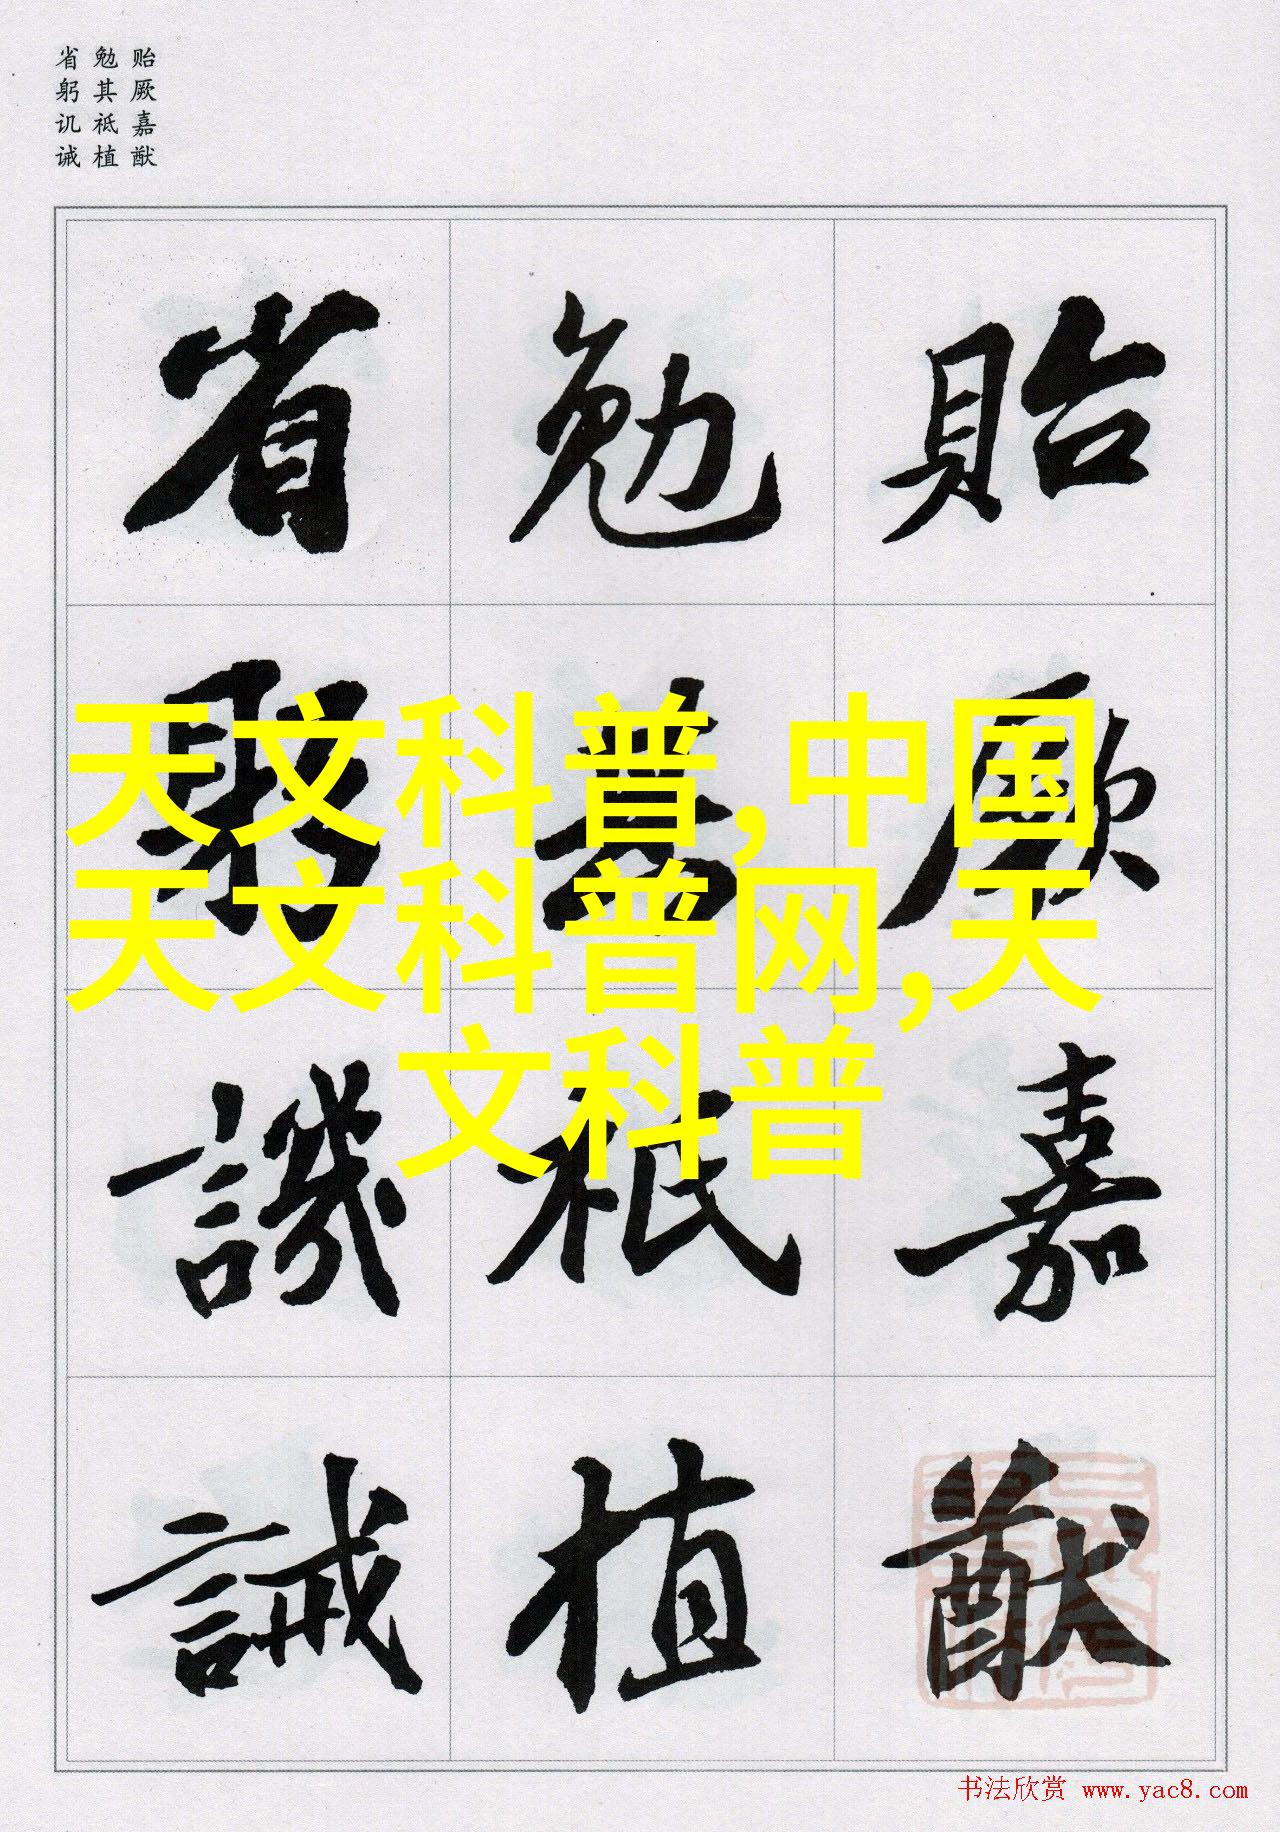 贻厥嘉猷
勉其祗植
省躬讥诫
貽厥嘉猷
勉其祗植
省躬譏誡
天文科普,中国
天文科普网,天
文科普
书法欣赏 www.yac8.com